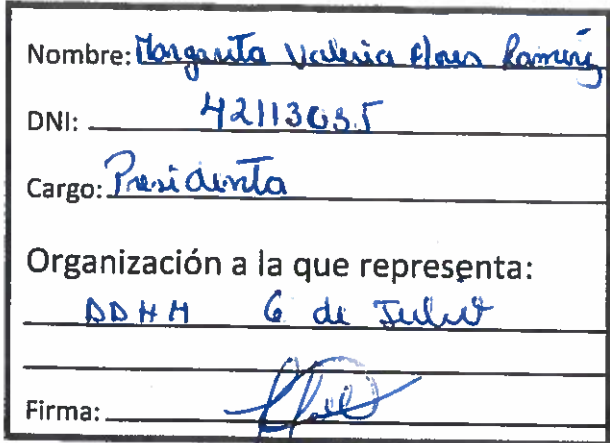 Nombre: Margarita Valeria Flores Ramirez
DNI: 42113035
Cargo: Presidenta
Organización a la que representa:
DDHH 6 de Julio
Firma: